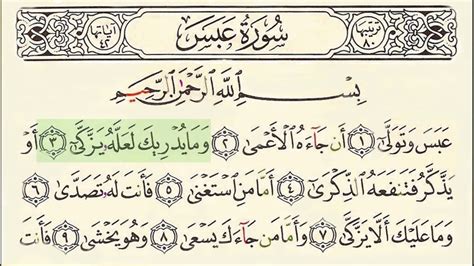 ترتيبها ٨٠ سُورَةُ عَبَسَ آياتها ٤٢
بِسْمِ ٱللَّهِ ٱلرَّحْمَٰنِ ٱلرَّحِيمِ
عَبَسَ وَتَوَلَّىٰٓ ١ أَن جَآءَهُ ٱلْأَعْمَىٰ ٢ وَمَا يُدْرِيكَ لَعَلَّهُۥ يَزَّكَّىٰٓ ٣ أَوْ
يَذَّكَّرُ فَتَنفَعَهُ ٱلذِّكْرَىٰٓ ٤ أَمَّا مَنِ ٱسْتَغْنَىٰ ٥ فَأَنتَ لَهُۥ تَصَدَّىٰ ٦
وَمَا عَلَيْكَ أَلَّا يَزَّكَّىٰ ٧ وَأَمَّا مَن جَآءَكَ يَسْعَىٰ ٨ وَهُوَ يَخْشَىٰ ٩ فَأَنتَ